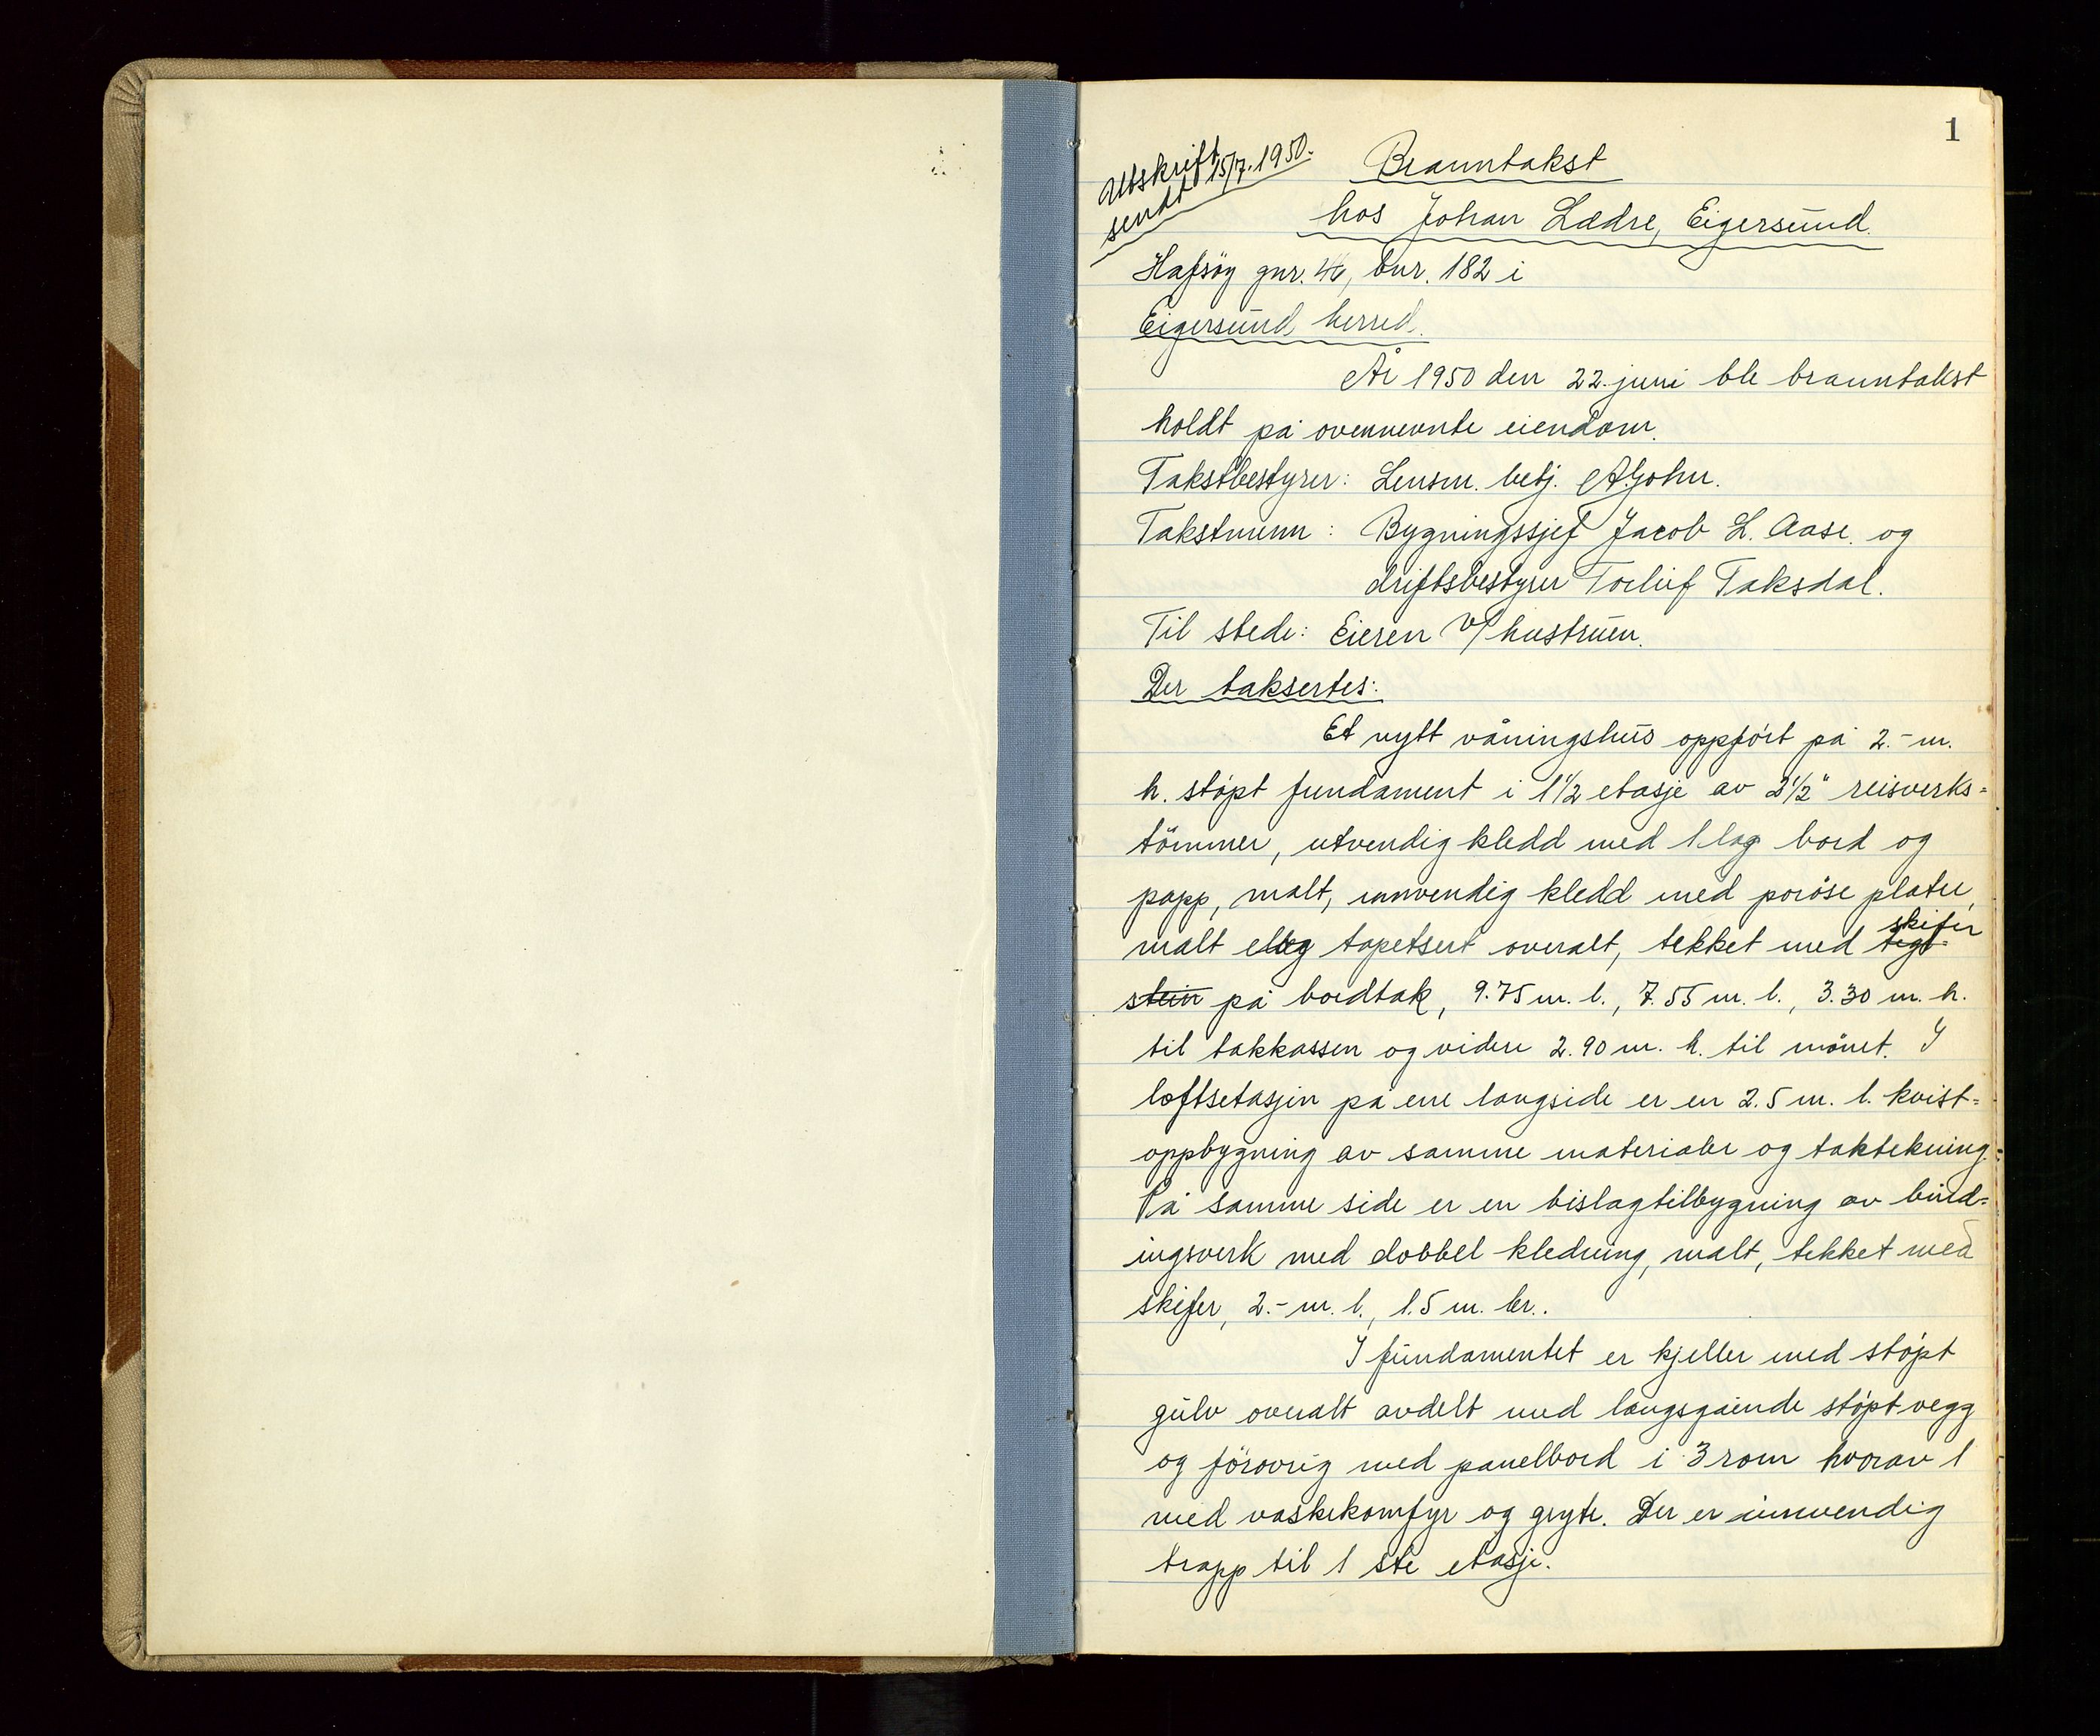 1
Utskrift
sendt 15/7. 1950.
Branntakst
hos Johan Lædre, Eigersund.
Hafsøy gnr. 46, bnr. 182 i
Eigersund herred.
År 1950 den 22. juni ble branntakst
holdt på ovennevnte eiendom.
Takstbestyrer: Lensm. betj. A. Gohn.
Takstmenn: Bygningssjef Jacob L. Aase og
driftsbestyrer Torleif Taksdal.
Til stede: Eieren v/ hustruen.
Der taksertes:
Et nytt våningshus oppført på 2.- m.
h. støpt fundament i 1 1/2 etasje av 2 1/2" reisverks=
tømmer, utvendig kledd med 1 lag bord og
papp, malt, innvendig kledd med porøse plater,
malt elleg tapetsert overalt, tekket med tegl skifer
stein på bordtak, 9.75 m. l., 7.55 m. b., 3.30 m. h.
til takkassen og videre 2.90 m. h. til mønet. I
loftsetasjen på ene langside er en 2.5 m. l. kvist=
oppbygning av samme materialer og taktekning.
På samme side er en bislagtilbygning av bind=
ingsverk med dobbel kledning, malt, tekket med
skifer, 2.- m. l., 1.5 m. br..
I fundamentet er kjeller med støpt
gulv overalt avdelt med langsgående støpt vegg
og forøvrig med panelbord i 3 rom hvorav 1
med vaskekomfyr og gryte. Der er innvendig
trapp til 1 ste etasje.